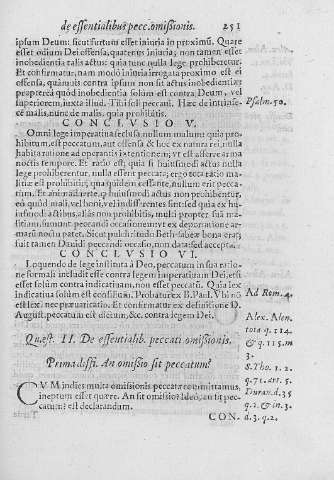 de essentialibus pecc. omissionis. 251
ipsum Deum: sicut furtum esset iniuria in proximū. Quare
esset odium Dei offensa, quatenus iniuria; non tamen esset
inobedientia talis actus: quia tunc nulla lege prohiberetur.
Et confirmatur, nam modo iniuria irrogata proximo est ei
offensa, quamuis contra ipsum non sit actus inobedientiæ;
propterea quod inobedientia solum est contra Deum, vel
superiorem, iuxta illud. Tibi soli peccaui. Hæc de intrinse
cè malis, nunc de malis, quia prohibitis.
Psalm. 50.
CONCLVSIO V.
Omni lege imperatiua seclusa nullum malum quia pro-
hibitum, est peccatum, aut offensa & hoc ex natura rei, nulla
habita ratione ad operantis intentionem;
noctis tempore. Et ratio est, quia si huiusmodi actus nulla
lege prohiberentur, nulla essent peccata; ergo tota ratio ma-
litiæ est prohibitio; qua quidem cessante, nullum erit pecca-
tum. Et animaduerte, quod huiusmodi actus non prohibentur,
eò quòd mali, vel boni, vel indifferentes sint: sed quia ex hu-
iusmodi actibus, aliàs non prohibitis, multi propter suā ma-
litiam, sumunt peccandi occasionem: vt ex deportatione ar-
marū noctu patet. Sicut pulchritudo Beth-sabeæ bona erat;
fuit tamen Dauidi peccandi occasio, non data: sed accepta.
CONCLVSIO VI.
Loquendo de lege instituta à Deo, peccatum in sua ratio-
ne formali includit esse contra legem imperatiuam Dei, et si
esset solùm contra indicatiuam, non esset peccatū. Quia lex
indicatiua solùm est consilium. Probatur ex B. Paul. Vbi nō
est lex, nec præuaricatio. Et confirmatur ex definitione D.
August. peccatum est dictum, &c. contra legem Dei.
Ad Rom. 4.
Quæst. II. De essentialib. peccati omissionis.
Prima diffi. An omissio sit peccatum?
CVM indies multa omissionis peccata committamus,
ineptum esset quærere. An sit omissio? Ideò, an sit pec-
catum? est declarandum.
Alex. Alen.
tota q. 114.
& q. 115. m
3.
S. Tho. 1. 2.
q. 71. art. 5.
Duran. d. 35
q. 1. & in. 3.
d. 3. q. 2.
CON.